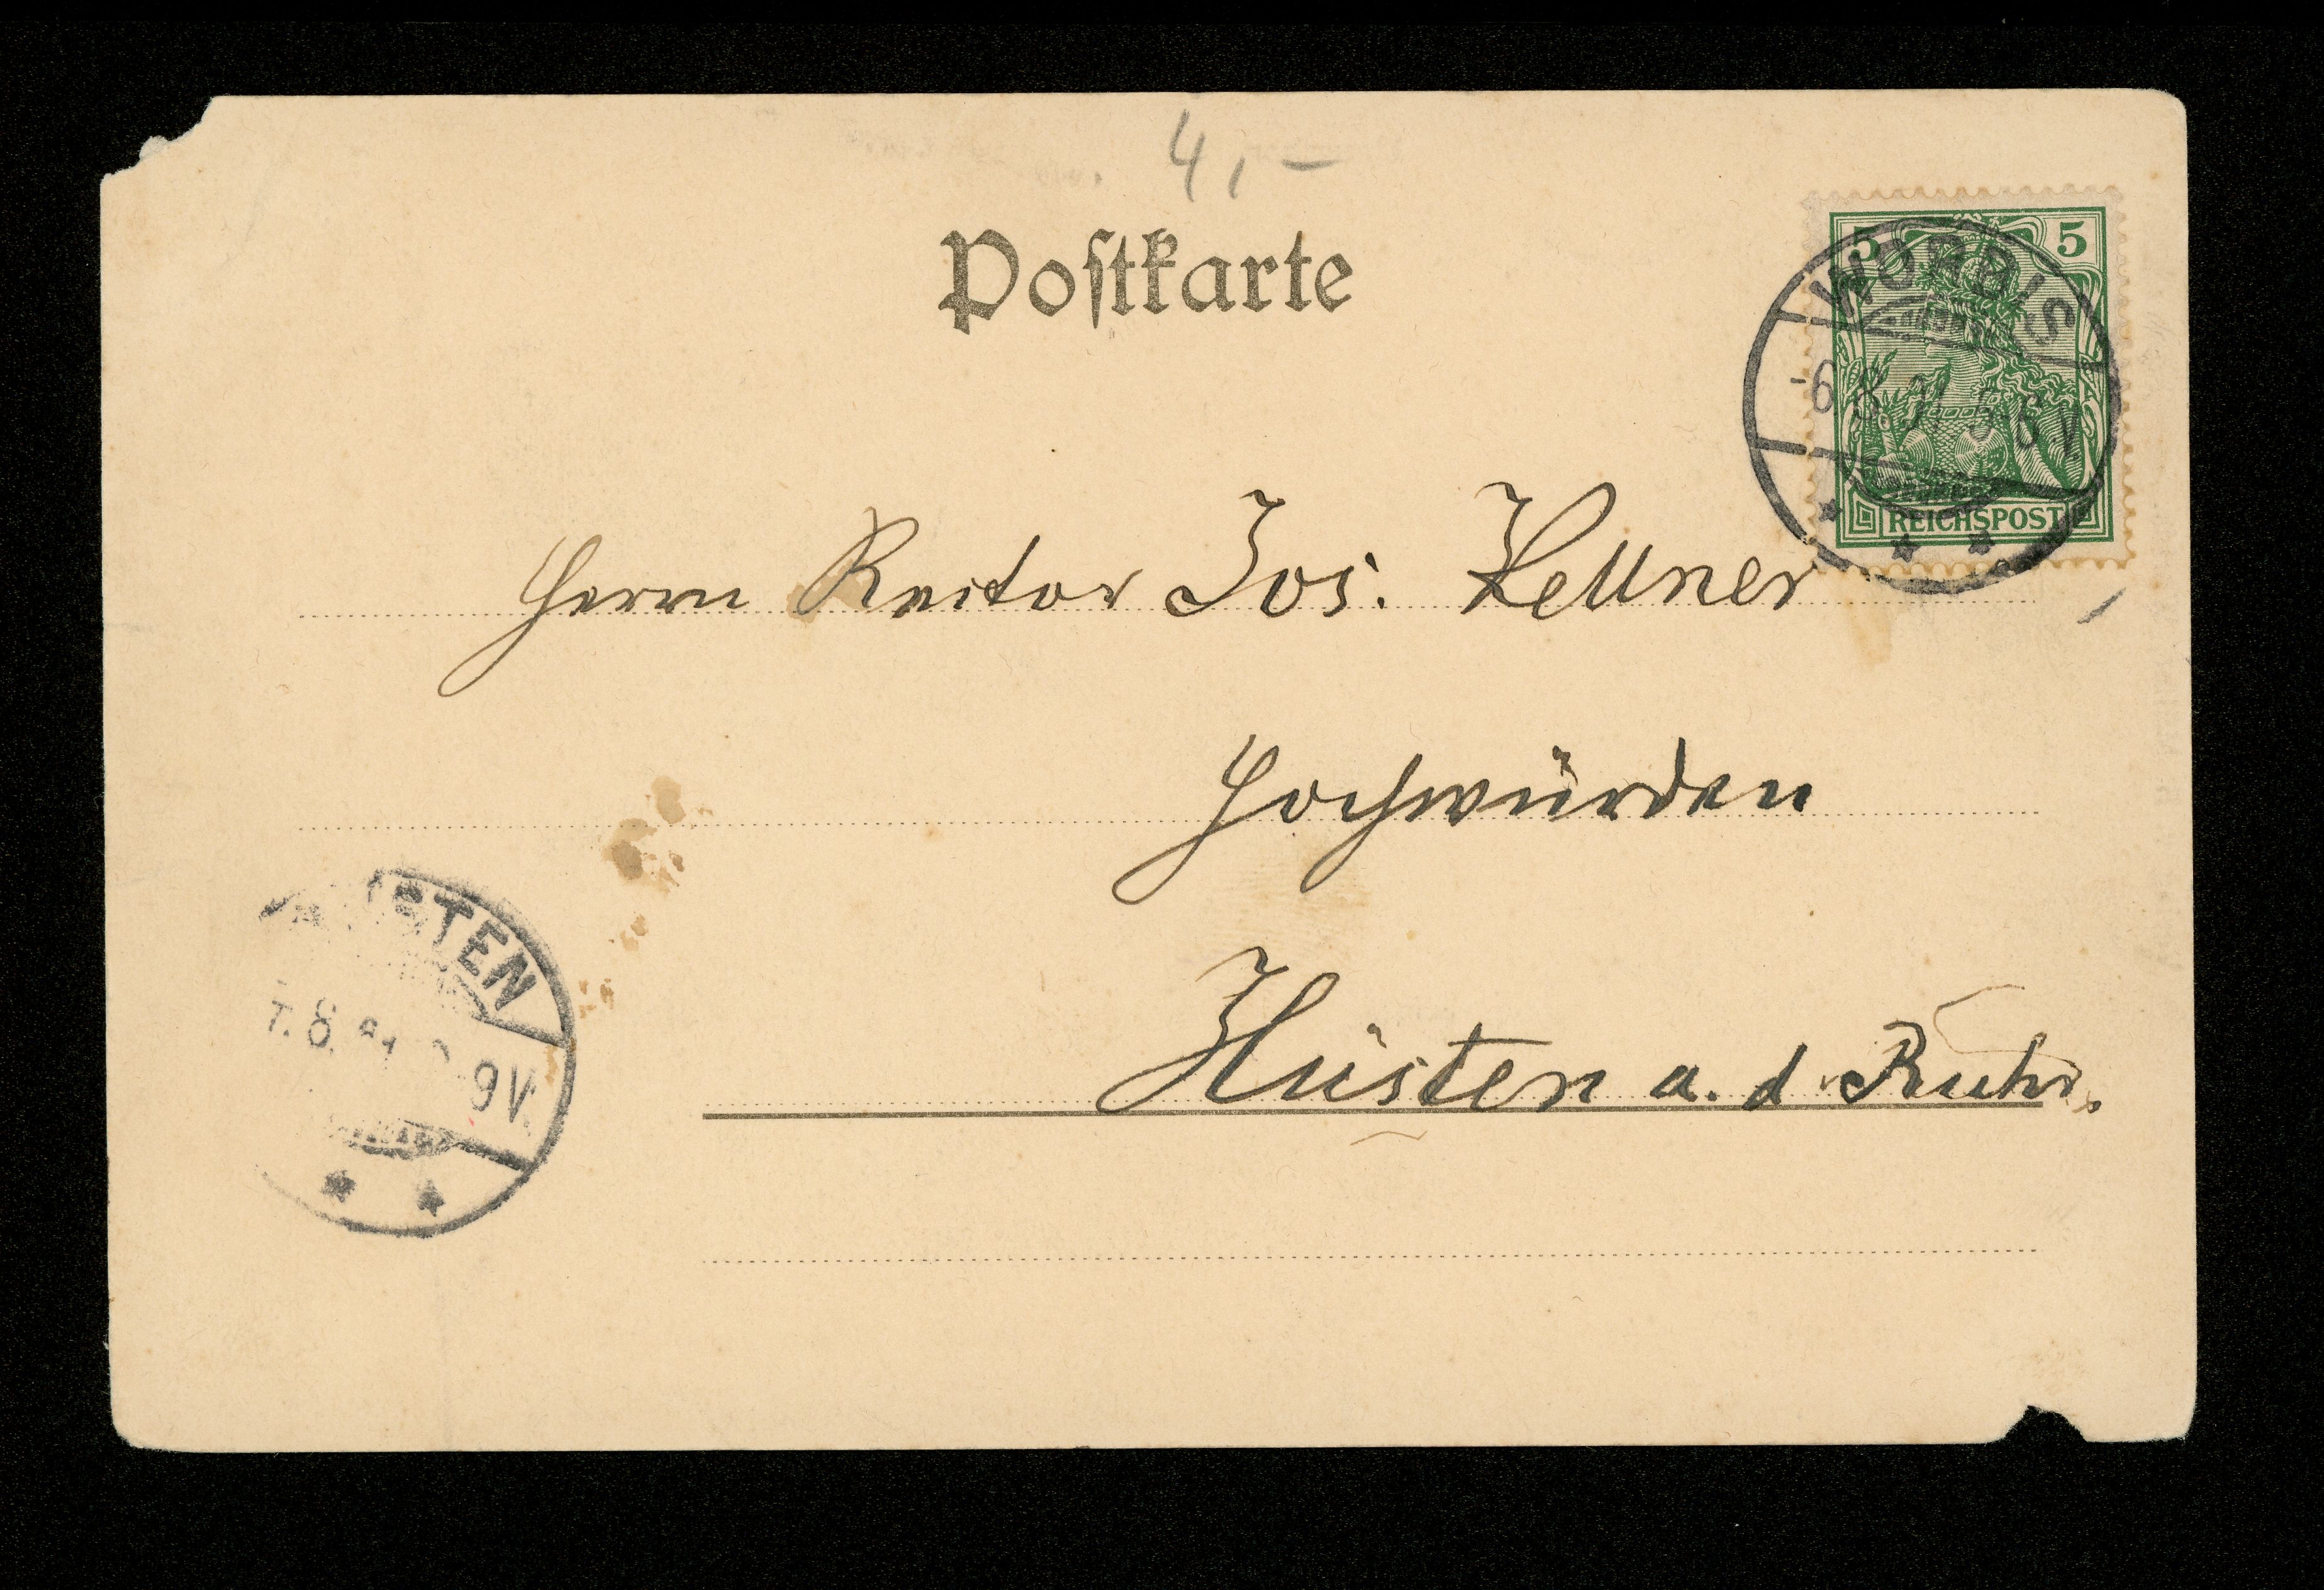 4,-
Postkarte
5 5
WORBIS
-6.8.01 5-6V
REICHSPOST
Herrn Rector Jos. Kellner
Hochwürden
Hüsten a. d. Ruhr.
STEN
7.8. 9V.